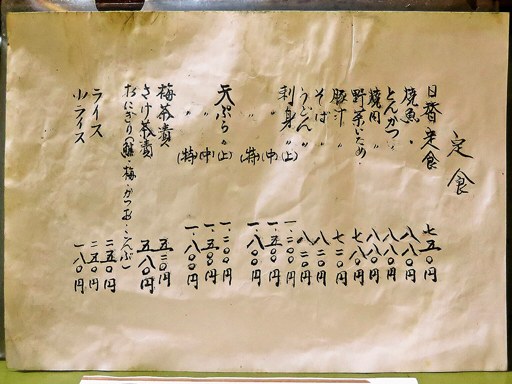 定食
日替定食 七五〇円
焼魚 〃 八八〇円
とんかつ 〃 八八〇円
焼肉 〃 八八〇円
野菜いため 〃 七八〇円
豚汁 〃 七二〇円
そば 〃 八二〇円
うどん 〃 八二〇円
刺身 〃 (上) 一、二〇〇円
〃 (中) 一、五〇〇円
〃 (特) 一、八〇〇円
天ぷら 〃 (上) 一、二〇〇円
〃 (中) 一、五〇〇円
〃 (特) 一、八〇〇円
梅茶漬 五三〇円
さけ茶漬 五八〇円
おにぎり(鮭・梅・かつお・こんぶ) 二五〇円
ライス 二五〇円
小ライス 一八〇円